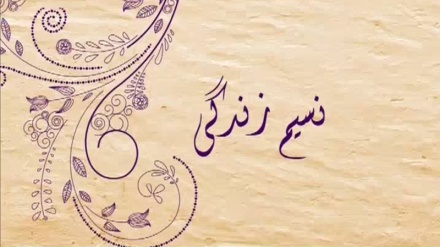 نسیم زندگی